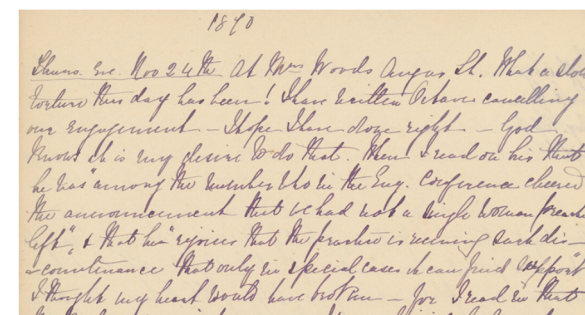 1890
Thurs. Eve. Nov 24th At Mrs Woods Angus St. What a slow
torture this day has been! I have written Octave cancelling
our engagement – I hope I have done right – God
knows it is my desire to do that. When I read in his that
he was "among the number who in the Eng. Conference cheered
the announcement that we had not a single woman preacher
left", & that he "rejoices that the practice is receiving such dis-
countenance that only in special cases it can find support"
I thought my heart would have broken – for I read in that